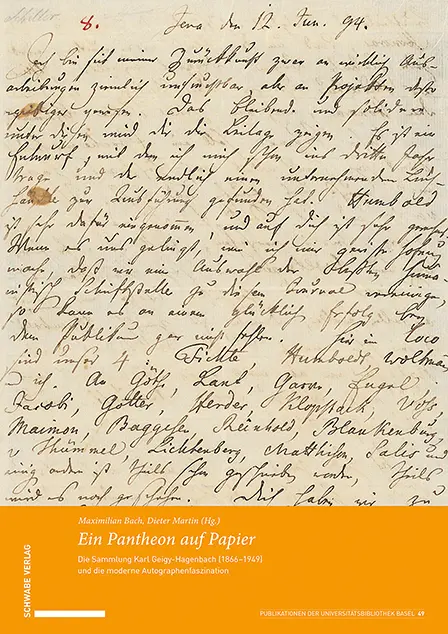 Schiller
8. Jena den 12. Jun. 94.
Ich bin seit meiner Zurückkunft zwar an wirklich Aus-
arbeitungen ziemlich unfruchtbar, aber an Projekten desto
ergiebiger gewesen. Das bleibende und solideste
unter diesen wird dir die Beilage zeigen. Es ist ein
Entwurf, mit dem ich mich schon ins dritte Jahr
trage und der Endlich einen unternehmenden Buch-
händler zur Ausführung gefunden hat. Humbold
ist sehr dafür eingenommen, und auf dich ist sehr gerechnet.
Wenn es uns gelingt, wie ich mir gewisse Hofnung
mache, daß wir eine Auswahl der Beßten huma-
nistisch Schriftsteller zu diesem Journal vereinigen
so kann es an einem glücklich Erfolg bey
dem Publikum gar nicht fehlen. Hier in Loco
sind unser 4, Fichte, Humboldt, Woltman,
u ich. An Göth, Kant, Garve, Engel
Jacobi, Gotter, Herder, Klopstock, Voss
Maimon, Baggesen, Reinhold, Blankenburg
v Thümmel, Lichtenberg, Matthison, Salis und
einig andre ist theils schon geschrieben worden, theils
wird es noch geschehen. Dich haben wir zu
Maximilian Bach, Dieter Martin (Hg.)
Ein Pantheon auf Papier
Die Sammlung Karl Geigy-Hagenbach (1866–1949)
und die moderne Autographenfaszination
SCHWABE VERLAG
PUBLIKATIONEN DER UNIVERSITÄTSBIBLIOTHEK BASEL 49